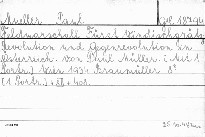 Mueller Paul.
Feldmarschall Fürst Windischgrätz
Revolution und Gegenrevolution in
Österreich. Von Paul Müller. Mit 1
Portr. Wien 1934 Braumüller 8°
(1 Portr.) +